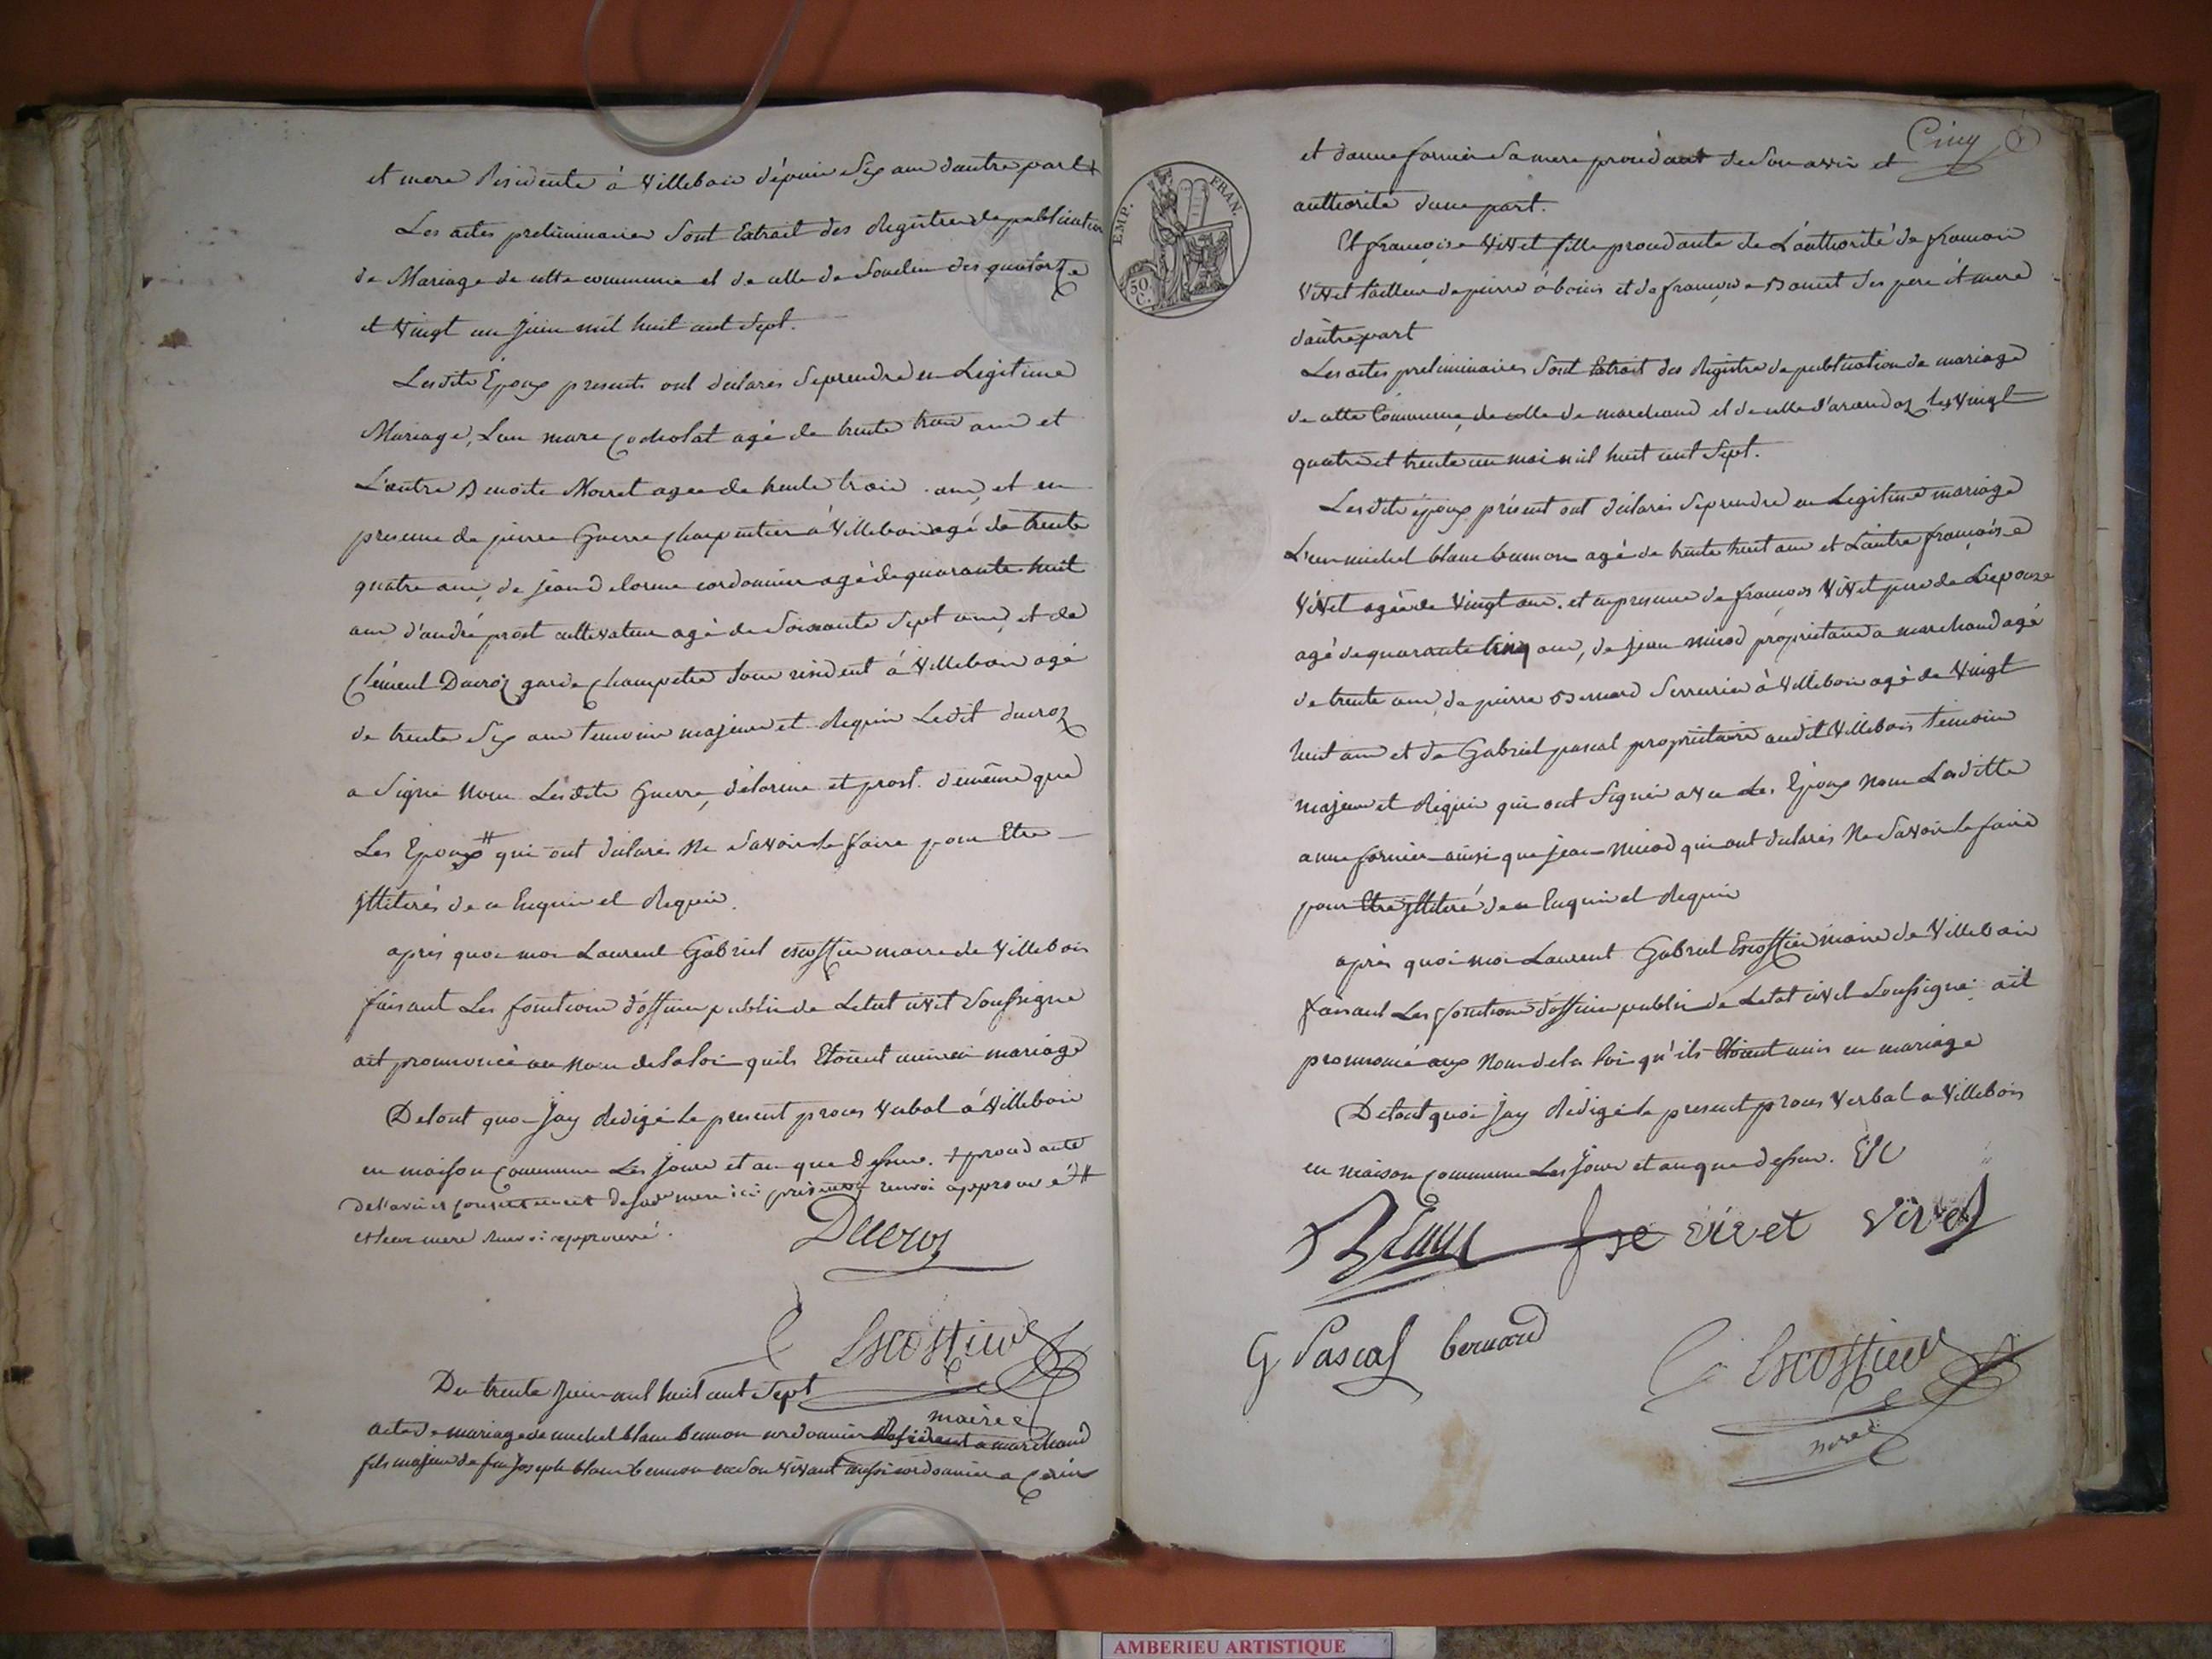 et mere Residente à Villebois dépuis Six ans dautre part +
Les actes preliminaires Sont Extrait des Registres de publication
de Mariage de cette commune et de celle de Souclin des quatorze
et Vingt un Juin mil huit cent Sept.
Lesdits Epoux presents ont déclarés Se prendre en Legitime
Mariage, L'un marc cocholat agé de trente trois ans et
L'autre Benoite Moiret agée de trente trois ans, et en
presence de pierre Guerre charpentier à Villebois agé de trente
quatre ans, de jean delorme cordonnier agé de quarante huit
ans d'andré prost cultivateur agé de Soixante Sept ans, et de
Clément Ducroz garde champetre tous resident à Villebois agé
de trente Six ans temoins majeurs et Requis Ledit ducroz
a Signé Nous Lesdits Guerre, délorme et prost. de même que
Les Epoux # qui ont déclarés Ne Savoir le faire pour Etre
Illiterés de ce Enquis et Requis.
après quoi moi Laurent Gabriel escoffier maire de Villebois
faisant Les fonctions d'officier public de Letat civil Soussigné
ait prononcé au Nom de la loi quils Etoient unis en mariage
De tout quoi Jay Redigé le present proces Verbal à Villebois
en maison Commune Les Jour et an que dessus. + procedante
de l'avis et consentement de sa mere ici présente renvoi approuvé #
et leur mere renvoi approuvé.
Ducroz
Escoffier
maire
Du trente Juin mil huit cent Sept
acte de mariage de michel blanc bennon cordonnier Résident a marchand
fils majeur de feu Joseph blanc bennon en Son Vivant aussi cordonnier a Cerin
Cinq
EMP. FRAN.
50 C.
et danne fornier Sa mere procedant de Son avis et
authorité dune part.
Et françoise Vivet fille procedante de L'authorité de francois
Vivet tailleur de pierre à bouis et de françoise Bonnet Ses pere et mere
d'autre part
Les actes preliminaires Sont Extrait des Registre de publication de mariage
de cette Commune, de celle de marchand et de celle d'arandaz les Vingt
quatre et trente un mai mil huit cent Sept.
Lesdits époux présent ont déclarés Se prendre en Legitime mariage
L'un michel blanc bennon agé de trente huit ans et L'autre françoise
Vivet agée de Vingt ans. et en presence de françois Vivet pere de L'epouse
agé de quarante Cinq ans, de jean Miod propriétaire a marchand agé
de trente ans, de pierre Bernard Serrurier à Villebois agé de Vingt
huit ans et de Gabriel pascal propriétaire audit Villebois temoins
majeurs et Réquis qui ont Signés avec Les Epoux Nom Laditte
anne fornier ainsi que jean Miod qui ont déclarés Ne Savoir le faire
pour Etre Illiteré de ce Enquis et Requis
après quoi moi Laurent Gabriel Escoffier maire de Villebois
faisant Les fonctions d'officier public de Letat civil Soussigné ait
prononcé aux Nom de la Loi qu'ils Etoient unis en mariage
De tout quoi Jay Rédigé le present proces Verbal a Villebois
en maison Commune Les Jour et an que dessus.
fse vivet vivet
G Pascal bernard
Escoffier
maire
AMBERIEU ARTISTIQUE